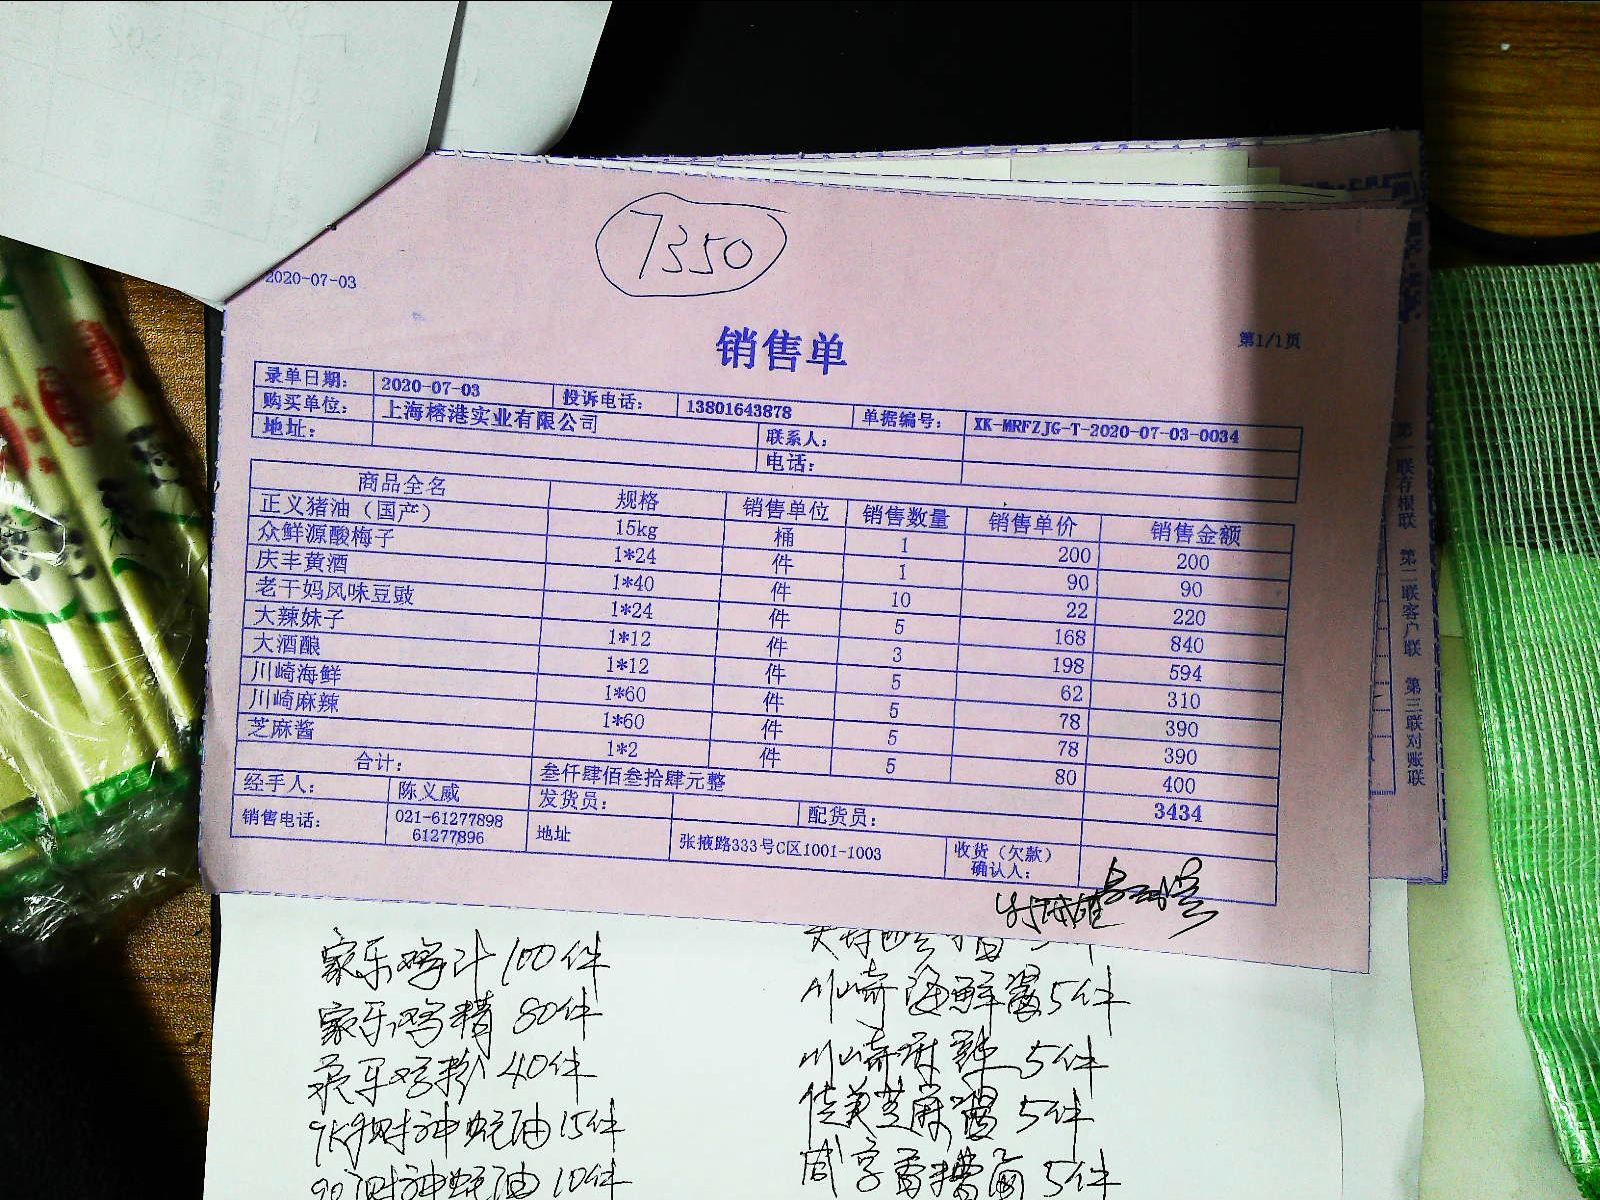 7350
2020-07-03
销售单
第1/1页
录单日期： 2020-07-03 投诉电话： 13801643878 单据编号： XK-MRFZJG-T-2020-07-03-0034
购买单位： 上海榕港实业有限公司 联系人：
地址： 电话：
商品全名 规格 销售单位 销售数量 销售单价 销售金额
正义猪油（国产） 15kg 桶 1 200 200
众鲜源酸梅子 1*24 件 1 90 90
庆丰黄酒 1*40 件 10 22 220
老干妈风味豆豉 1*24 件 5 168 840
大辣妹子 1*12 件 3 198 594
大酒酿 1*12 件 5 62 310
川崎海鲜 1*60 件 5 78 390
川崎麻辣 1*60 件 5 78 390
芝麻酱 1*2 件 5 80 400
合计： 叁仟肆佰叁拾肆元整 3434
经手人： 陈义威 发货员： 配货员：
销售电话： 021-61277898 61277896 地址 张掖路333号C区1001-1003 收货（欠款）确认人：
第一联存根联 第二联客户联 第三联对账联
家乐鸡汁100件
家乐鸡精 80件
家乐鸡粉 40件
财神蚝油15件
财神蚝油10件
川崎海鲜酱5件
川崎麻辣 5件
佳美芝麻酱 5件
5件